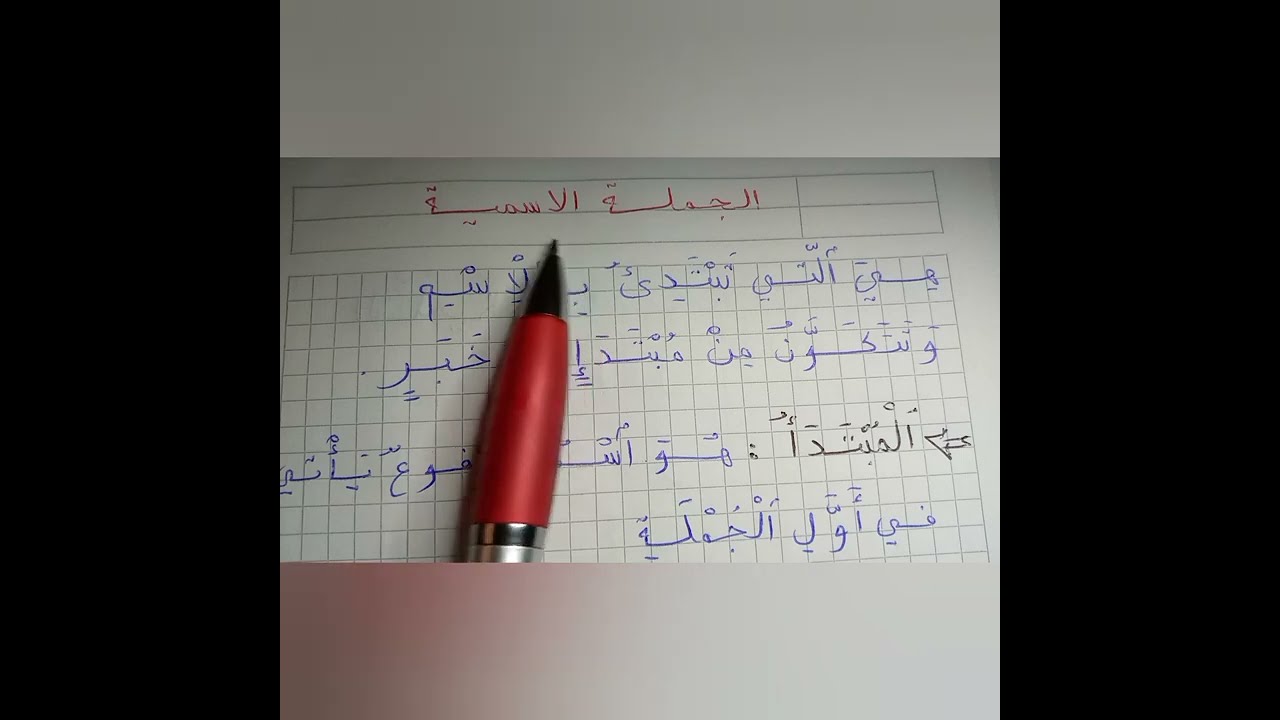 الجملة الاسمية
هِيَ اَلَّتِي تَبْتَدِئُ بِالْاِسْمِ
وَتَتَكَوَّنُ مِنْ مُبْتَدَإٍ خَبَرٍ.
اَلْمُبْتَدَأُ : هُوَ يَأْتِي
فِي أَوَّلِ اَلْجُمْلَةِ